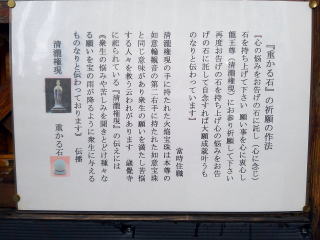 『重かる石』の祈願の作法
『心の悩みをお告げの石に託し（心に念じ）
石を持ち上げて下さい 願い事を心に衷心し
龍王尊（清瀧権現）にお参り祈願して下さい
再度お告げの石を持ち上げ心の悩みをお告
げの石に託して自念すれば大願成就叶うも
のなりと伝わっています』
當時住職
清瀧権現の手に持たれた火焔宝珠は本尊の
如意輪観音の第二右手に持たれた如意宝珠
と同じ意味があり衆生の願いを満たし苦悩
する人々を救う云われがあります 歳聖寺
に祀られている『清瀧権現』の伝えには
《衆生の悩みや苦しみを聞きとどけ種々な
る願いを宝の雨が降るように衆生に与える
ものなりと伝わっております》 伝播
清瀧権現
重かる石